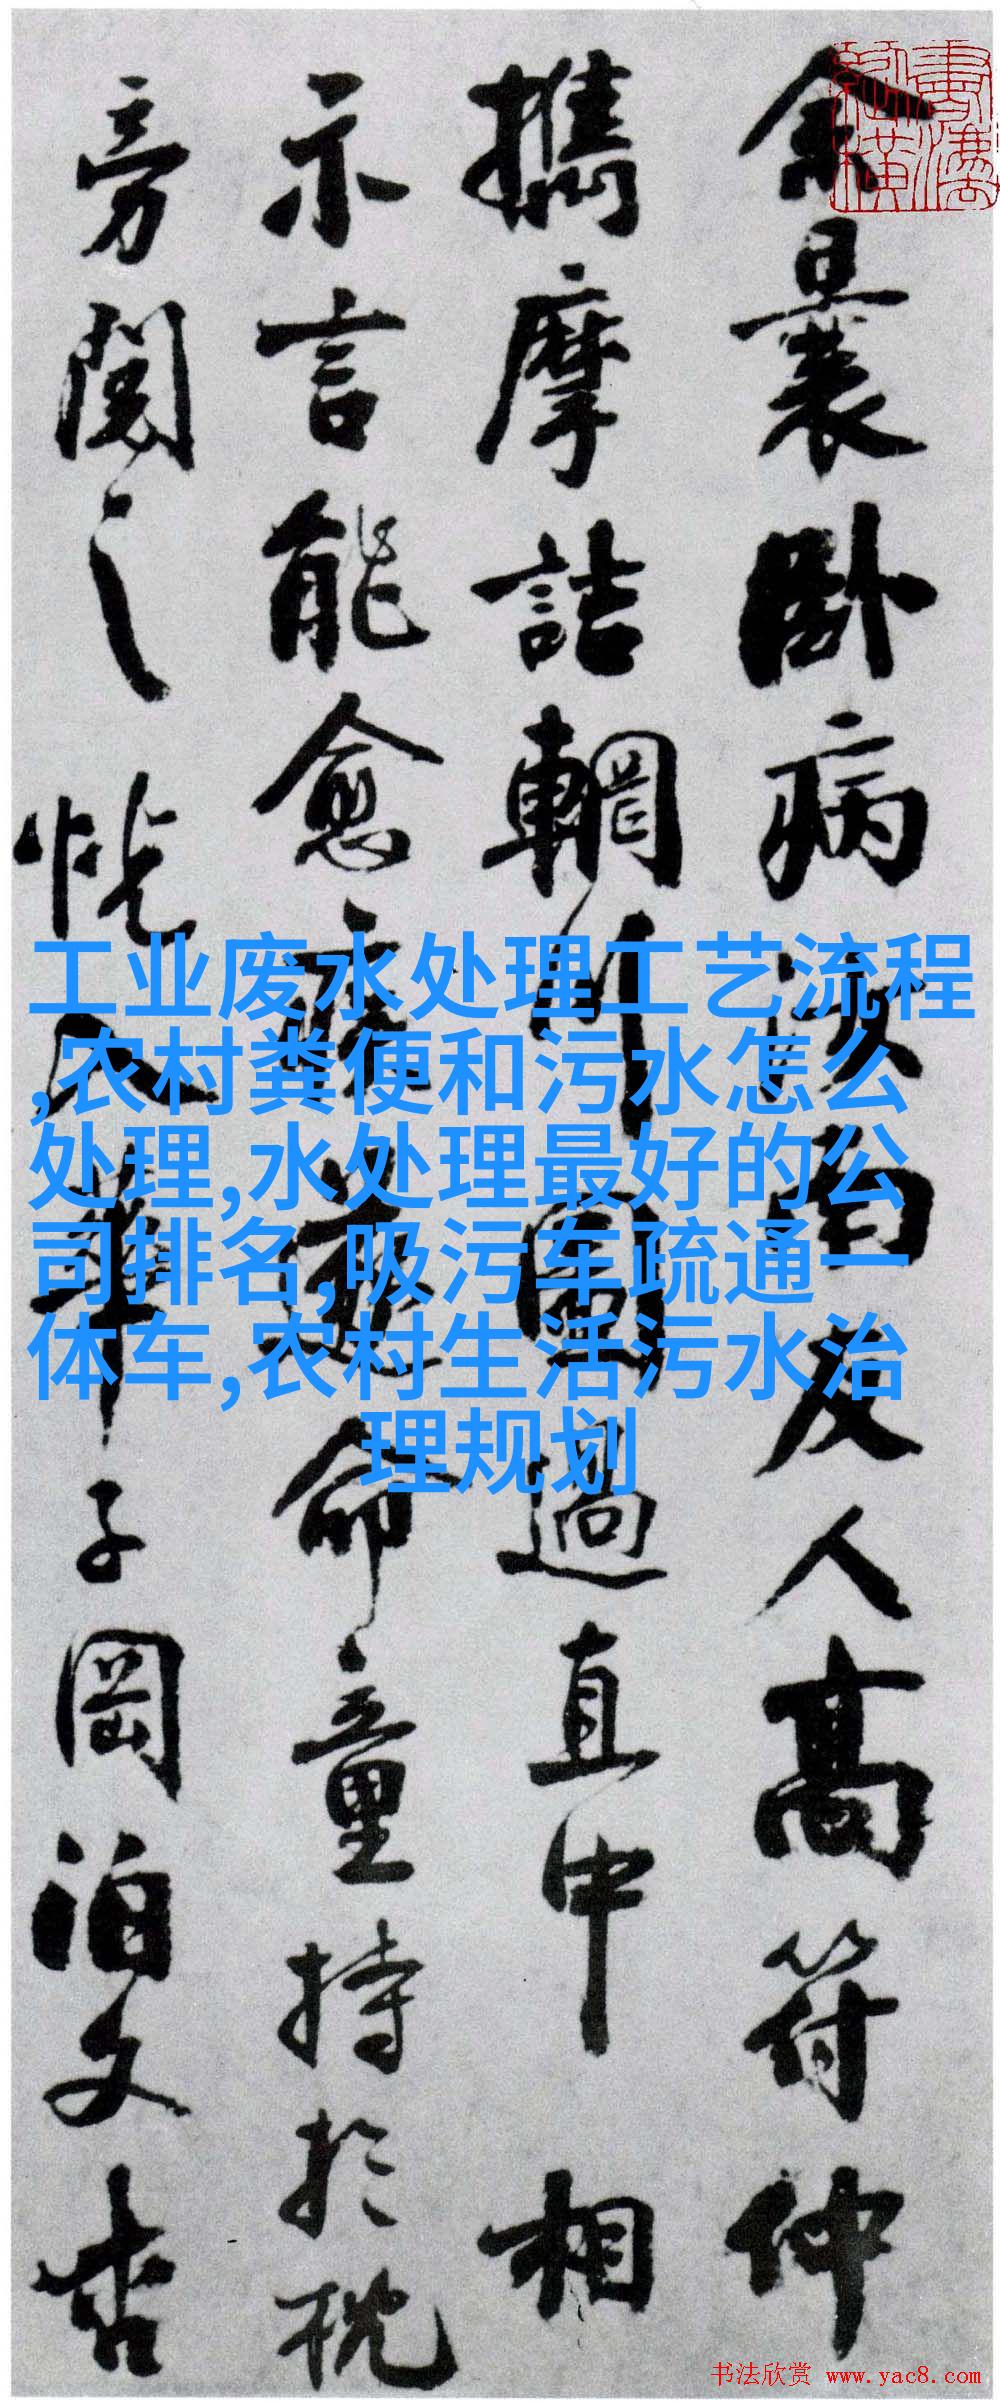 余曩卧病汝南友人高符仲
攜摩詰輞川圖過直中相
示言能愈疾遂命童持於枕
旁閱之恍入華子岡泊文杏
工业废水处理工艺流程
,农村粪便和污水怎么
处理,水处理最好的公
司排名,吸污车疏通一
体车,农村生活污水治
理规划
书法欣赏 www.yac8.com